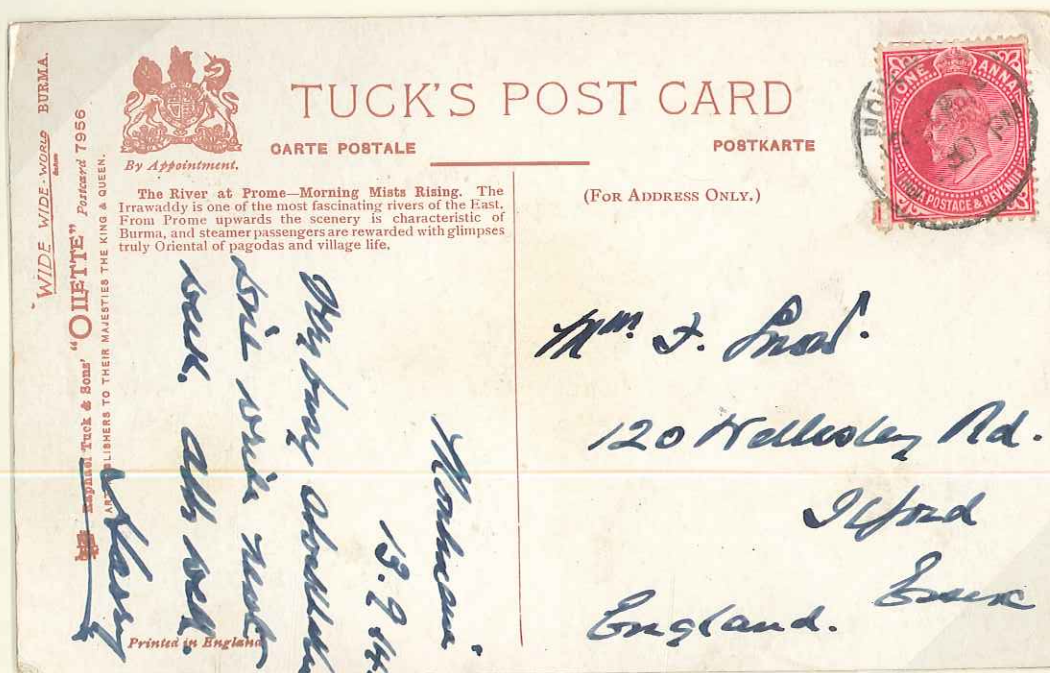 WIDE-WIDE-WORLD BURMA.
Raphael Tuck & Sons' "OILETTE" Postcard 7956
ART PUBLISHERS TO THEIR MAJESTIES THE KING & QUEEN.
By Appointment.
TUCK'S POST CARD
CARTE POSTALE
POSTKARTE
The River at Prome—Morning Mists Rising. The
Irrawaddy is one of the most fascinating rivers of the East.
From Prome upwards the scenery is characteristic of
Burma, and steamer passengers are rewarded with glimpses
truly Oriental of pagodas and village life.
(FOR ADDRESS ONLY.)
ONE ANNA
INDIA POSTAGE & REVENUE
Moulmein
13.9.14.
busy
will write next
week. All's well.
Harry
F.
120 Wellesley Rd.
Ilford
Essex
England.
Printed in England